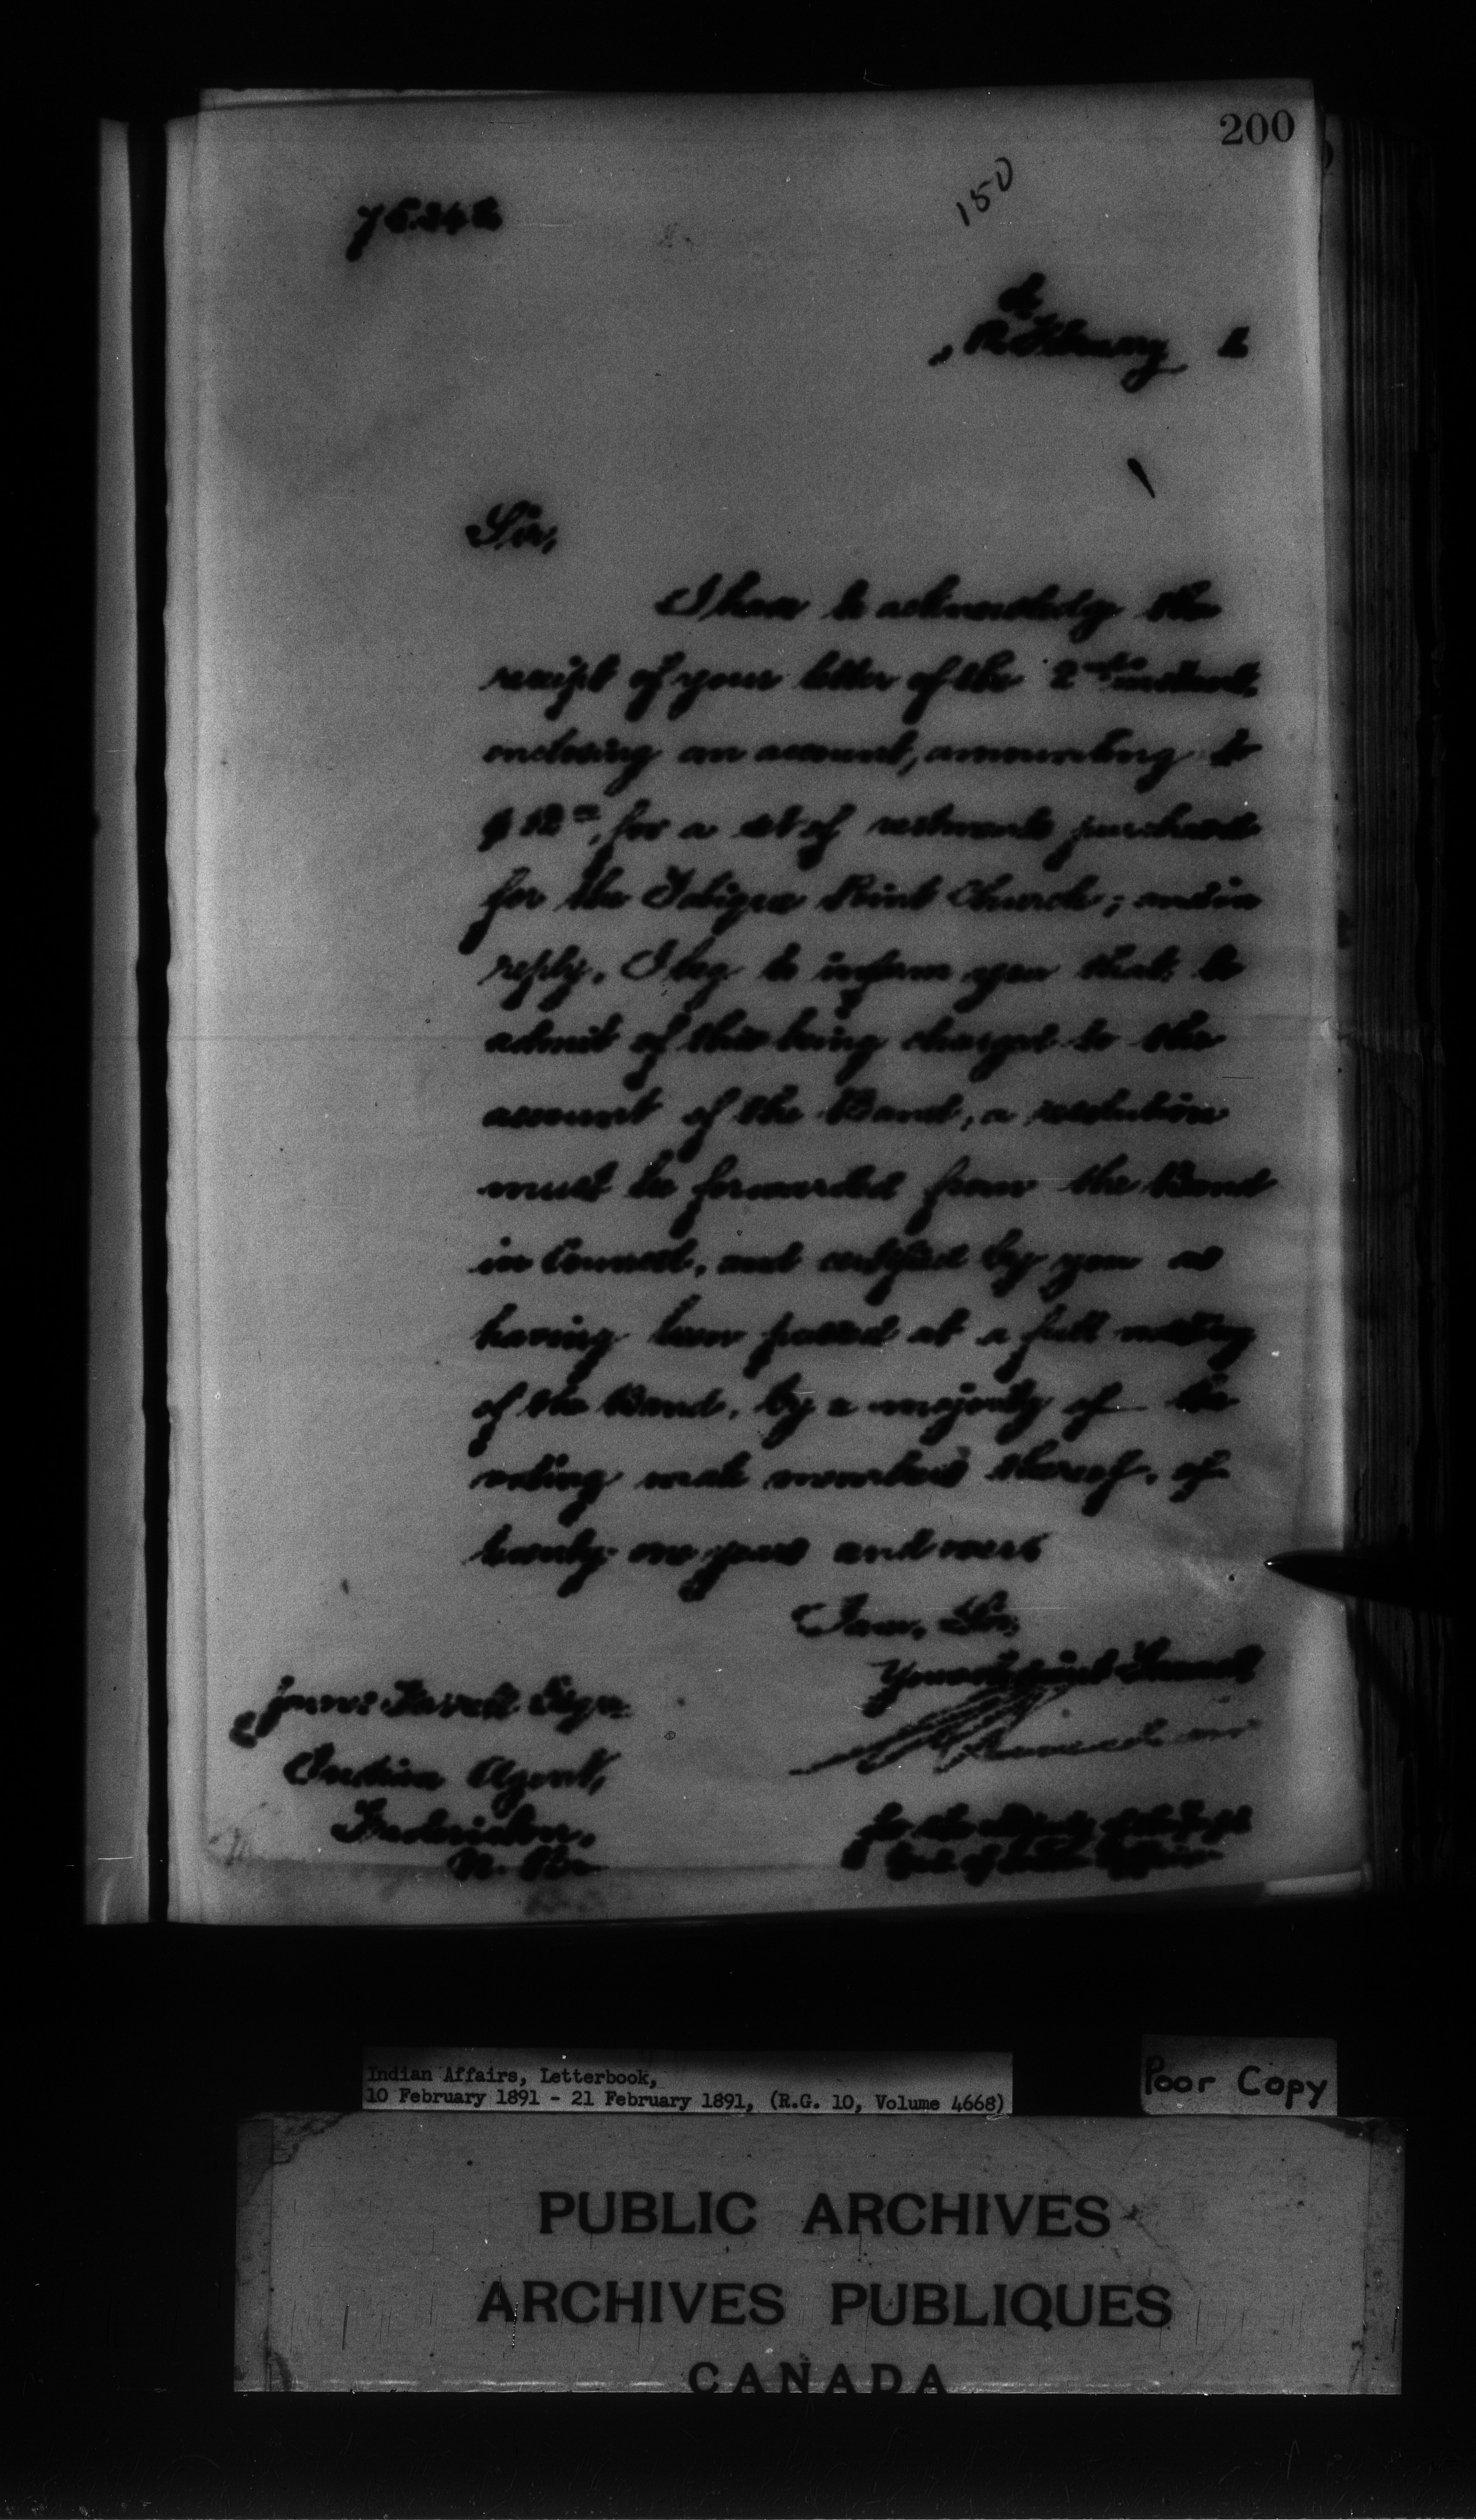 200
150
February
Sir,
I have to acknowledge the
receipt of your letter of the 2nd instant,
enclosing an account, amounting to
$12 for a set of vestments purchased
for the Tobique Point Church; and in
reply, I beg to inform you that, to
admit of this being charged to the
account of the Band, a resolution
must be forwarded from the Band
in Council, and certified by you as
having been passed at a full meeting
of the Band, by a majority of the
voting male members thereof, of
twenty-one years and over.
I am, Sir,
Your obedient Servant
James Farrell Esqr.
Indian Agent,
Fredericton,
N. B.
for the Deputy of the Supt.
Genl. of Indian Affairs
Indian Affairs, Letterbook,
10 February 1891 - 21 February 1891, (R.G. 10, Volume 4668)
Poor Copy
PUBLIC ARCHIVES
ARCHIVES PUBLIQUES
CANADA